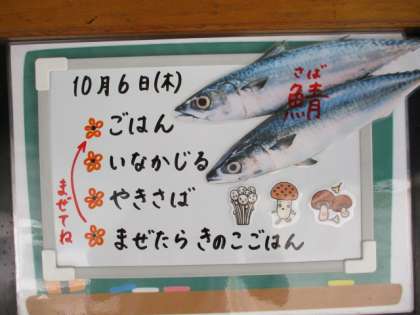 10月6日(木)
さば
鯖
ごはん
いなかじる
やきさば
まぜたら きのこごはん
まぜてね